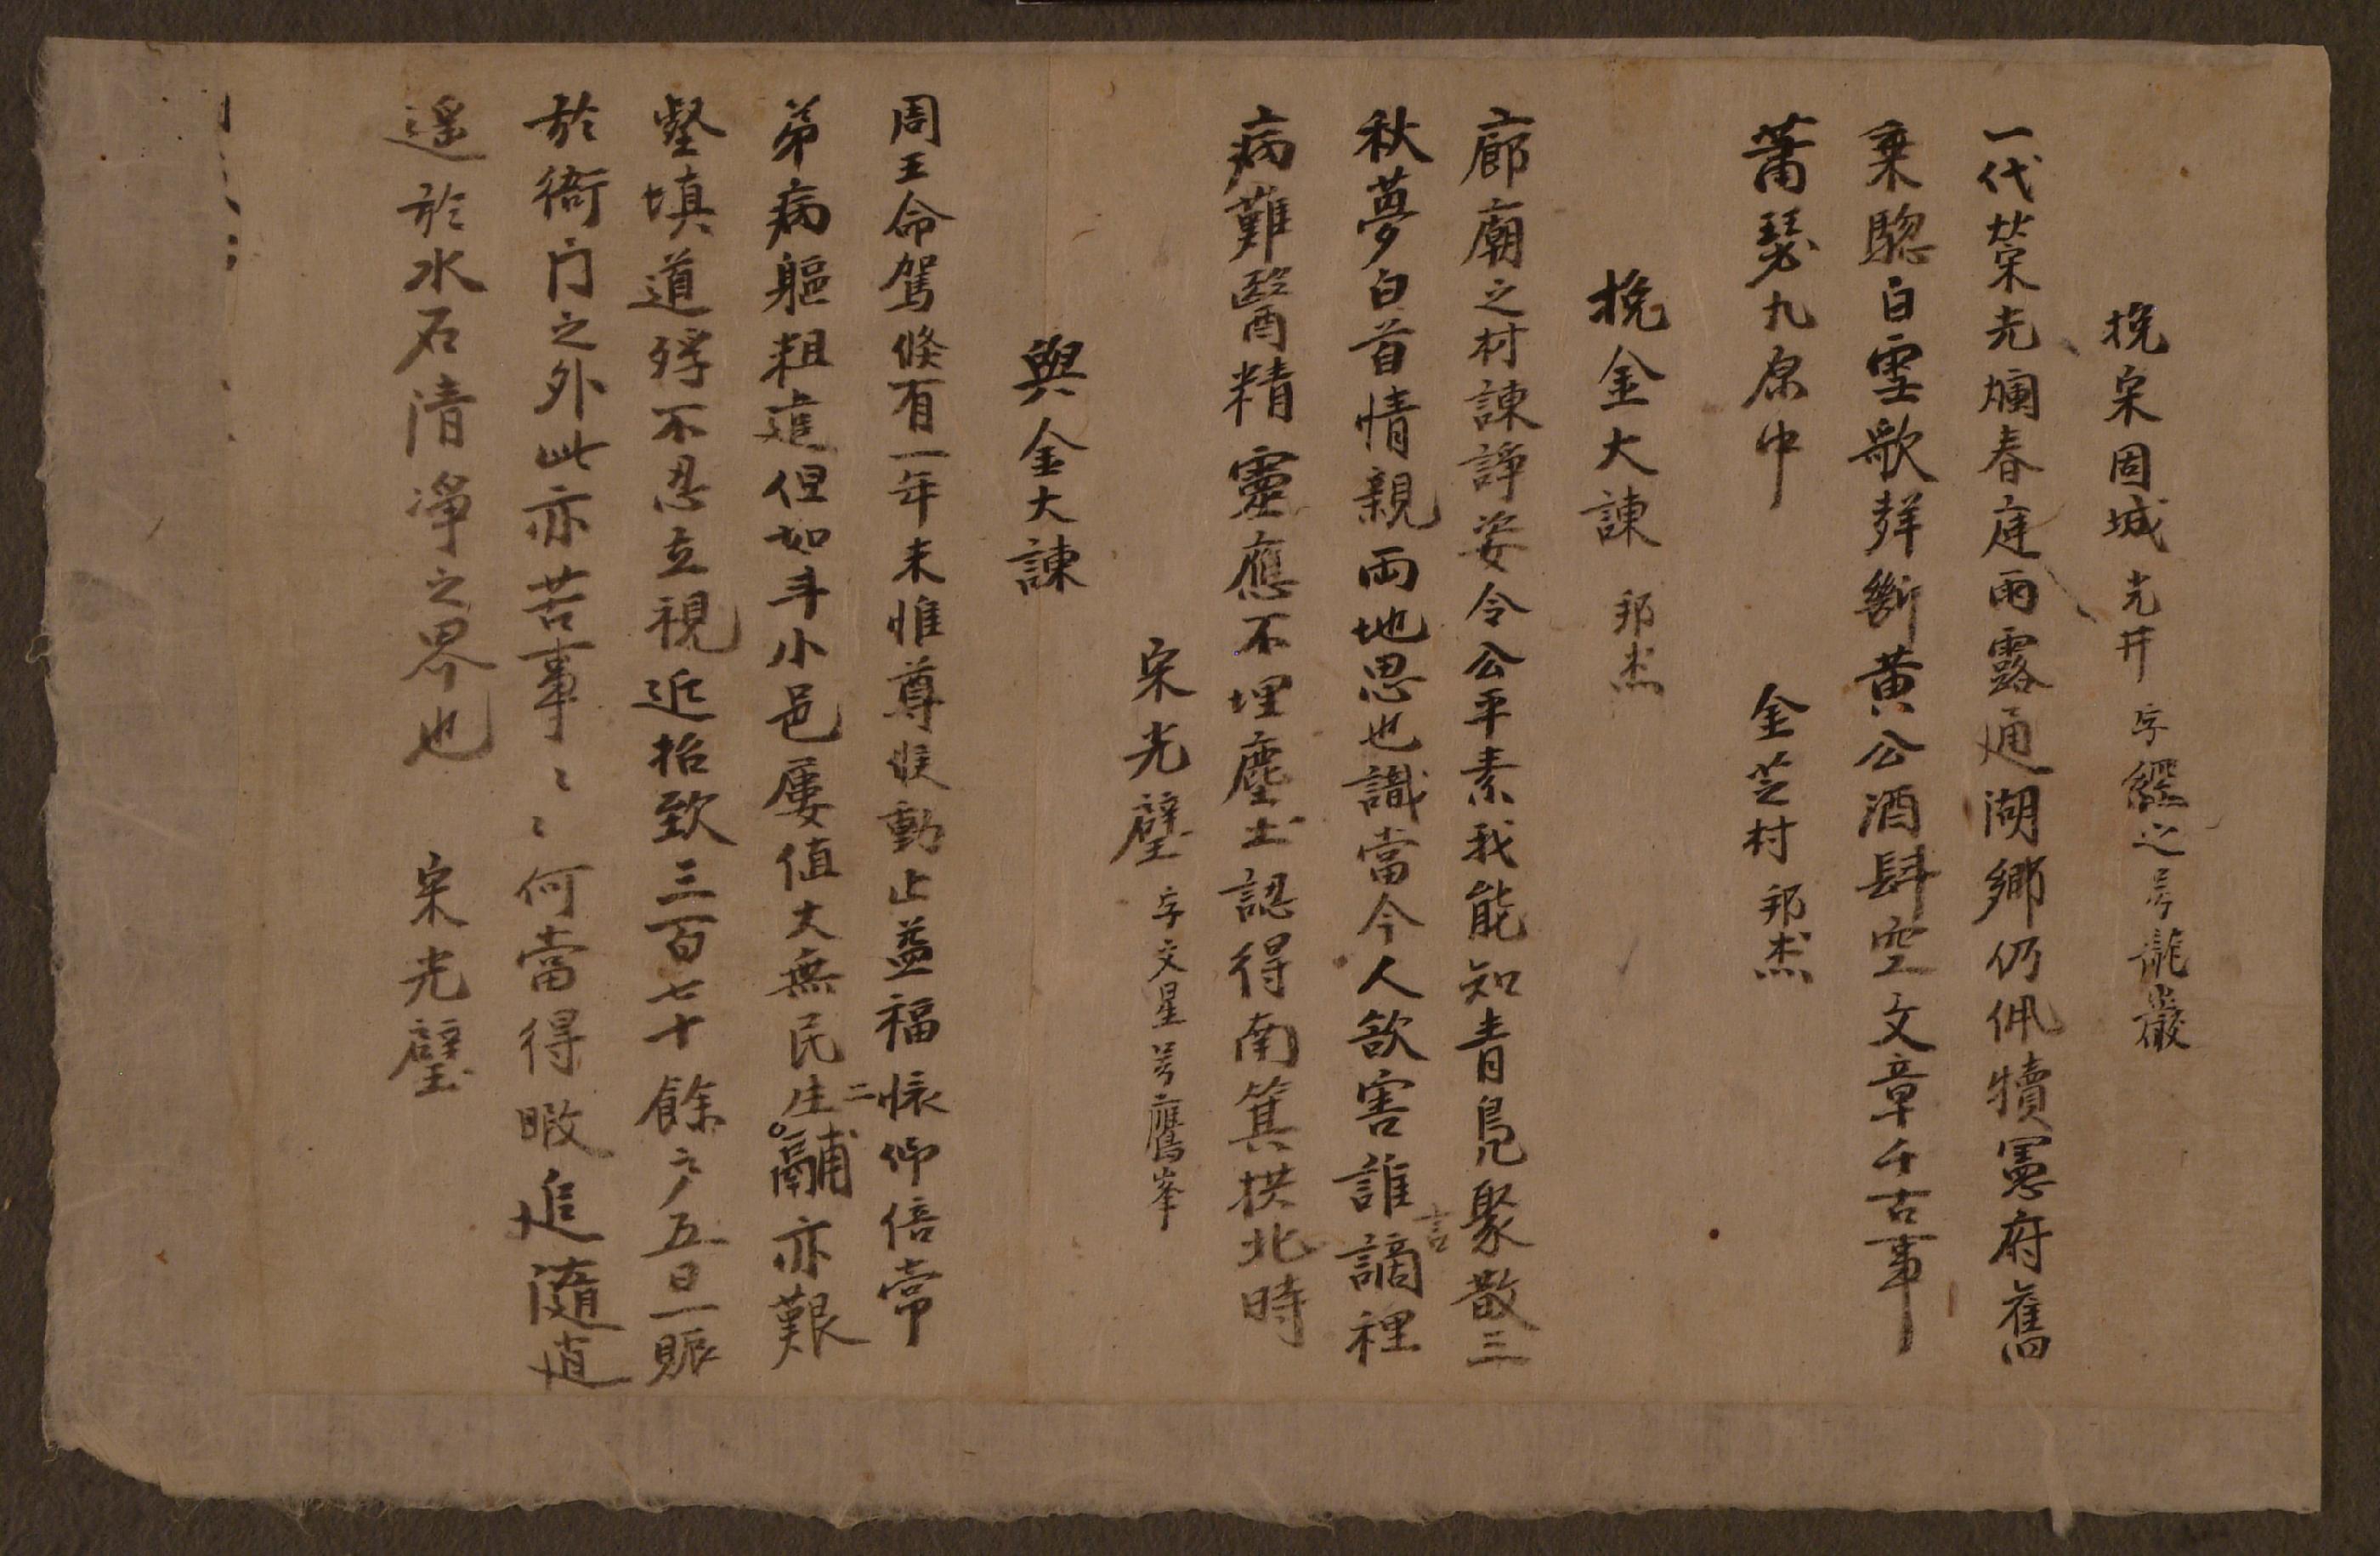 挽宋固城 光井 字經之 号龍巖
一代榮光爛春庭雨露通湖鄉仍佩犢憲府舊
乘驄白雪歌聲斷黃公酒肆空文章千古事
蕭瑟九原中 金芝村 邦杰
挽金大諫 邦杰
廊廟之材諫諍姿令公平素我能知青鳧聚散三
秋夢白首情親兩地思也識當今人欲害誰言謫裡
病難醫精靈應不埋塵土認得南箕拱北時
宋光璧 字文星 号鷹峯
與金大諫
周王命駕倐有一年未惟尊候動止益福悵仰倍常
弟病軀粗遣但如斗小邑屢值大無民生二黼亦艱
壑填道殍不忍立視近抬致三百七十餘户五日一賑
於衙门之外此亦苦事〻〻何當得暇追隨逍
遥於水石清凈之界也 宋光璧